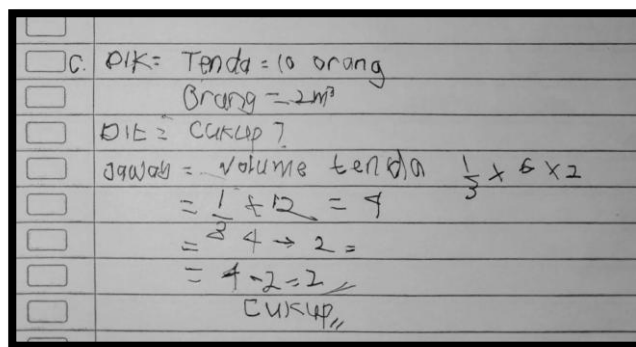 C. DIK = Tenda = 10 orang
Brang = 2m³
DIt = Cukup?
Jawab = volume tenda 1/3 × 6 × 2
= 1/3 × 12 = 4
= 4 → 2 =
= 4 - 2 = 2
Cukup